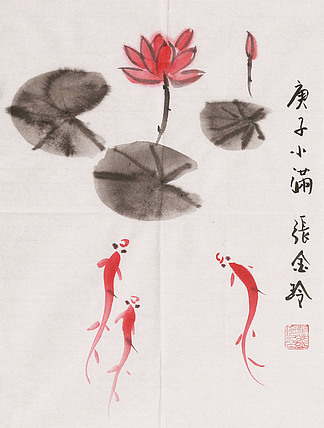 庚子小满 張金玲